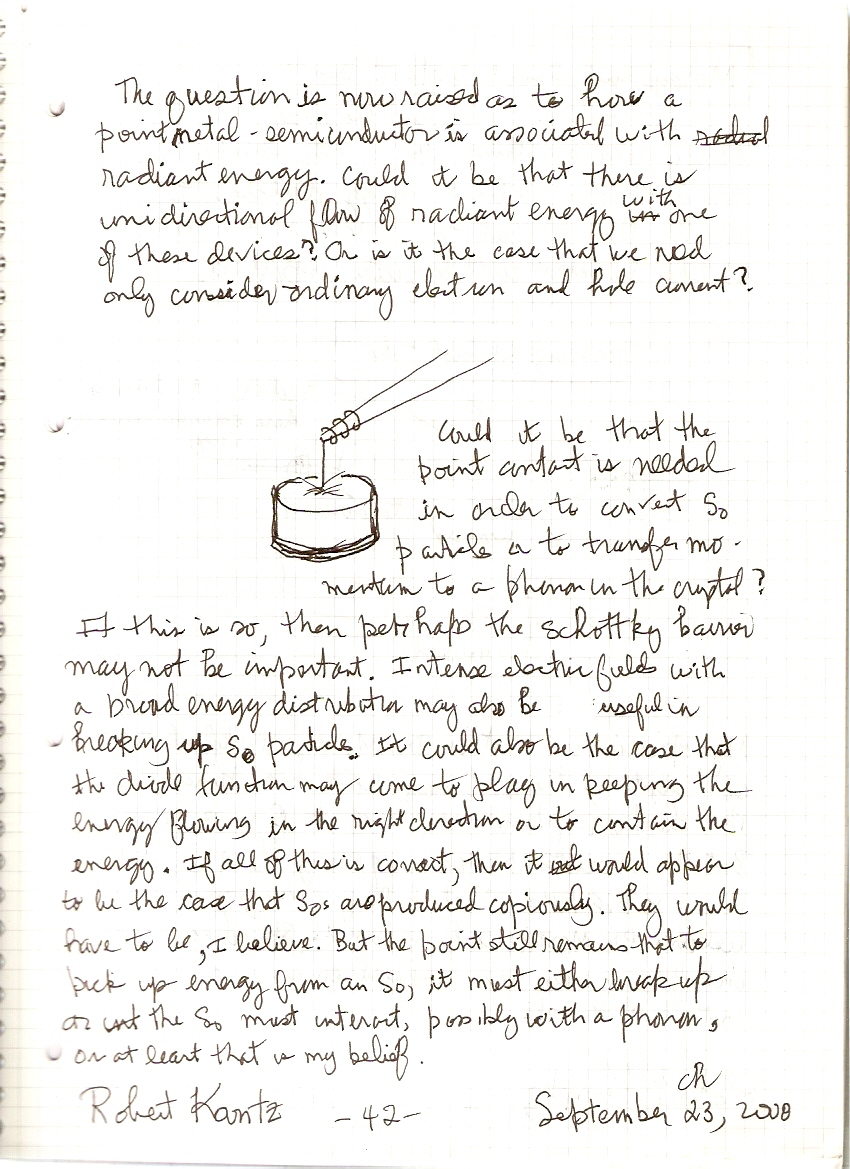 The question is now raised as to how a
point metal-semiconductor is associated with
radiant energy. Could it be that there is
unidirectional flow of radiant energy with one
of these devices? Or is it the case that we need
only consider ordinary electron and hole current?
Could it be that the
point contact is needed
in order to convert S₀
particle or to transfer mo-
mentum to a phonon in the crystal?
If this is so, then perhaps the Schottky barrier
may not be important. Intense electric fields with
a broad energy distribution may also be useful in
breaking up S₀ particle. It could also be the case that
the diode function may come to play in keeping the
energy flowing in the right direction or to contain the
energy. If all of this is correct, then it would appear
to be the case that S₀s are produced copiously. They would
have to be, I believe. But the point still remains that to
pick up energy from an S₀, it must either break up
or the S₀ must interact, possibly with a phonon,
or at least that is my belief.
ch
Robert Kantz -42- September 23, 2008